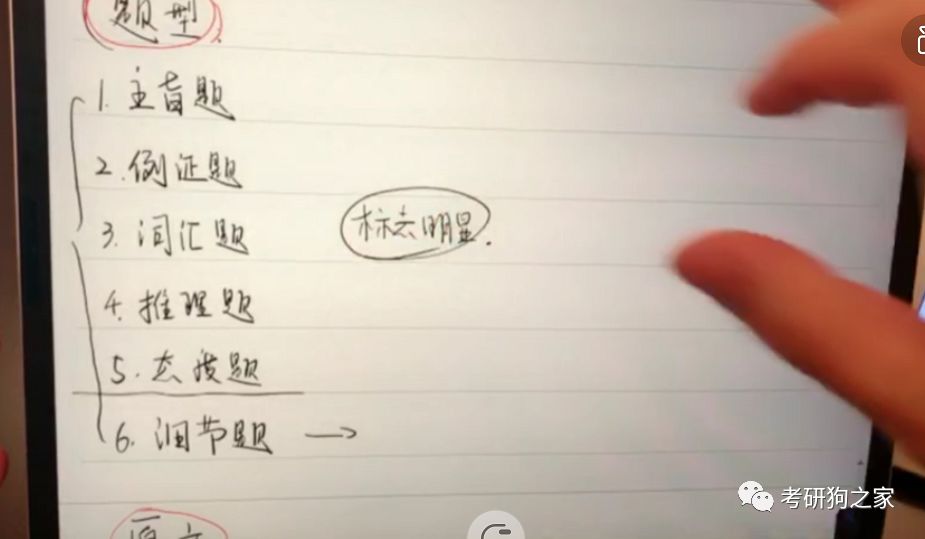 题型
1. 主旨题
2. 例证题
3. 词汇题
标志明显.
4. 推理题
5. 态度题
6. 细节题 →
考研狗之家